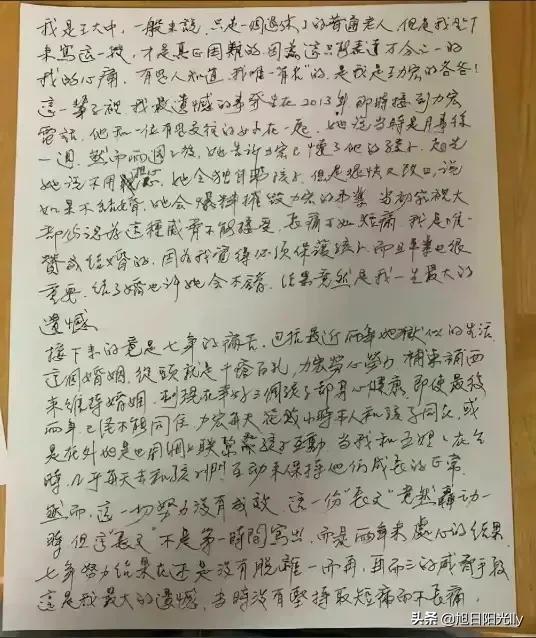 我是王大中，一般來說，只是一個退休了的普通老人，但是我坐下
來寫這一段，才是真正困難的，因為這只能表達万分之一的
我的心痛，有些人知道，我唯一"有名"的，是我是王力宏的爸爸！
這一輩子裡，我最遺憾的事發生在2013年，那時接到力宏
電話，他和一位有過交往的女子在一起，她說當時是月事後
一週，然而兩週之後，她告訴力宏已懷了他的孩子，起先
她說不用，她會独自 孩子，但是很快又改口，說
如果不結婚，她會爆料摧毀力宏的事業，當初家裡大
都份認為這種威脅不能接受，長痛不如短痛，我是唯一
贊成結婚的，因為我覺得必須保護孩子，而且事業也很
重要，結了婚也許她會不錯，結果竟然是我一生最大的
遺憾。
接下來的竟是七年的痛苦，包括最近兩年地獄似的生活
這個婚姻，從頭就是千瘡百孔，力宏勞心勞力，補東補西
來維持婚姻，到現在幸好三個孩子都身心健康，即使最後
兩年，已經不能同住，力宏每天花数小時本人和孩子同在，或
是在外的是也用個人联繫 孩子互動，當我和 在台
時，几乎每天去和孩子們互動來保持他們成長的正常，
然而，這一切努力沒有成效，這一份"長文"竟然轟动一
時，但這"長文"不是第一時間寫出，而是兩年來處心的結果，
七年努力結果在还是沒有脫離一而再，再而三的威脅手段
這是我最大的遺憾，當時沒有堅持取短痛而不長痛，
头条 @旭日阳光lly